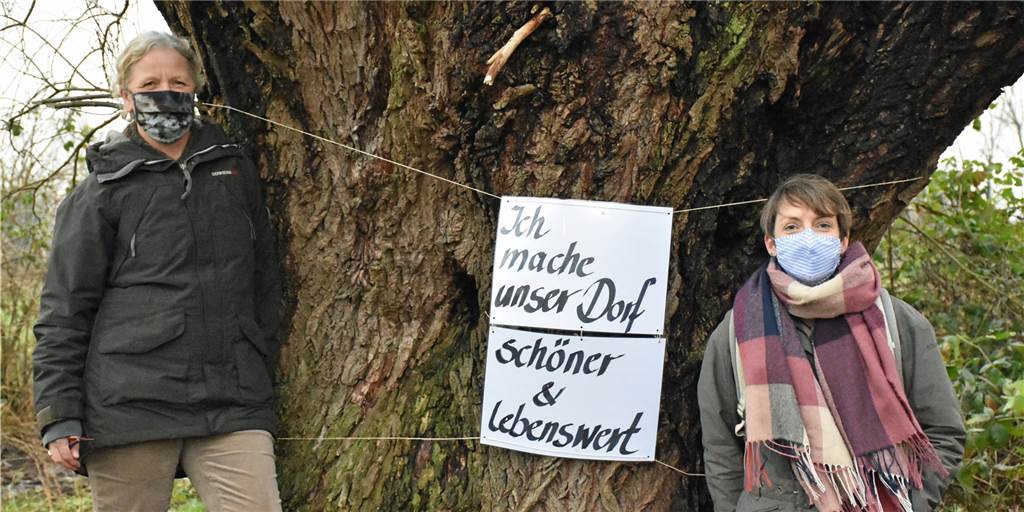 Ich
mache
unser Dorf
schöner
&
lebenswert